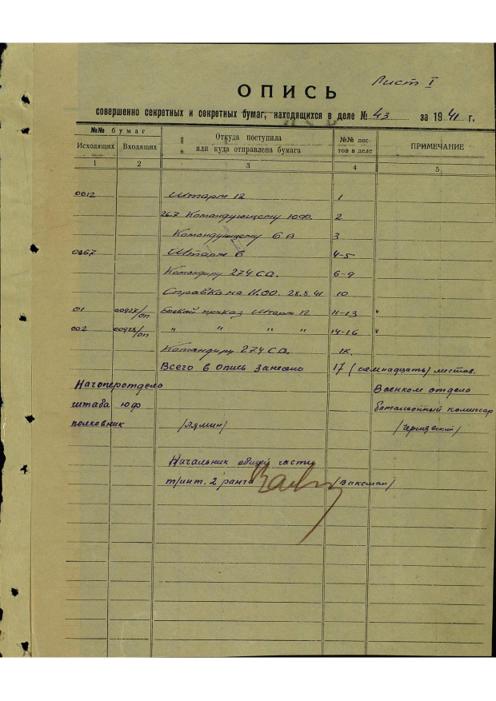 Лист I
ОПИСЬ
совершенно секретных и секретных бумаг, находящихся в деле № 43 за 1941 г.
№№ бумаг
Откуда поступила или куда отправлена бумага
№№ листов в деле
ПРИМЕЧАНИЕ
Исходящих Входящих
1 2 3 4 5
0012 Штарм 12 1
Командующему ЮФ 2
Командующему 6 А 3
Штарм 6 4-5
Командиру 274 СД. 6-9
Справка на 11.00. 28.8.41 10
01 Боевой приказ Штарм 12 11-13 "
002 " " " " 14-16 "
Командиру 274 СД.
Всего в опись занесено 17 (семнадцать) листов.
Начоперотдела Военком отдела
штаба ЮФ батальонный комиссар
полковник
Начальник общей части
т/инт. 2 ранга (Ваксман)